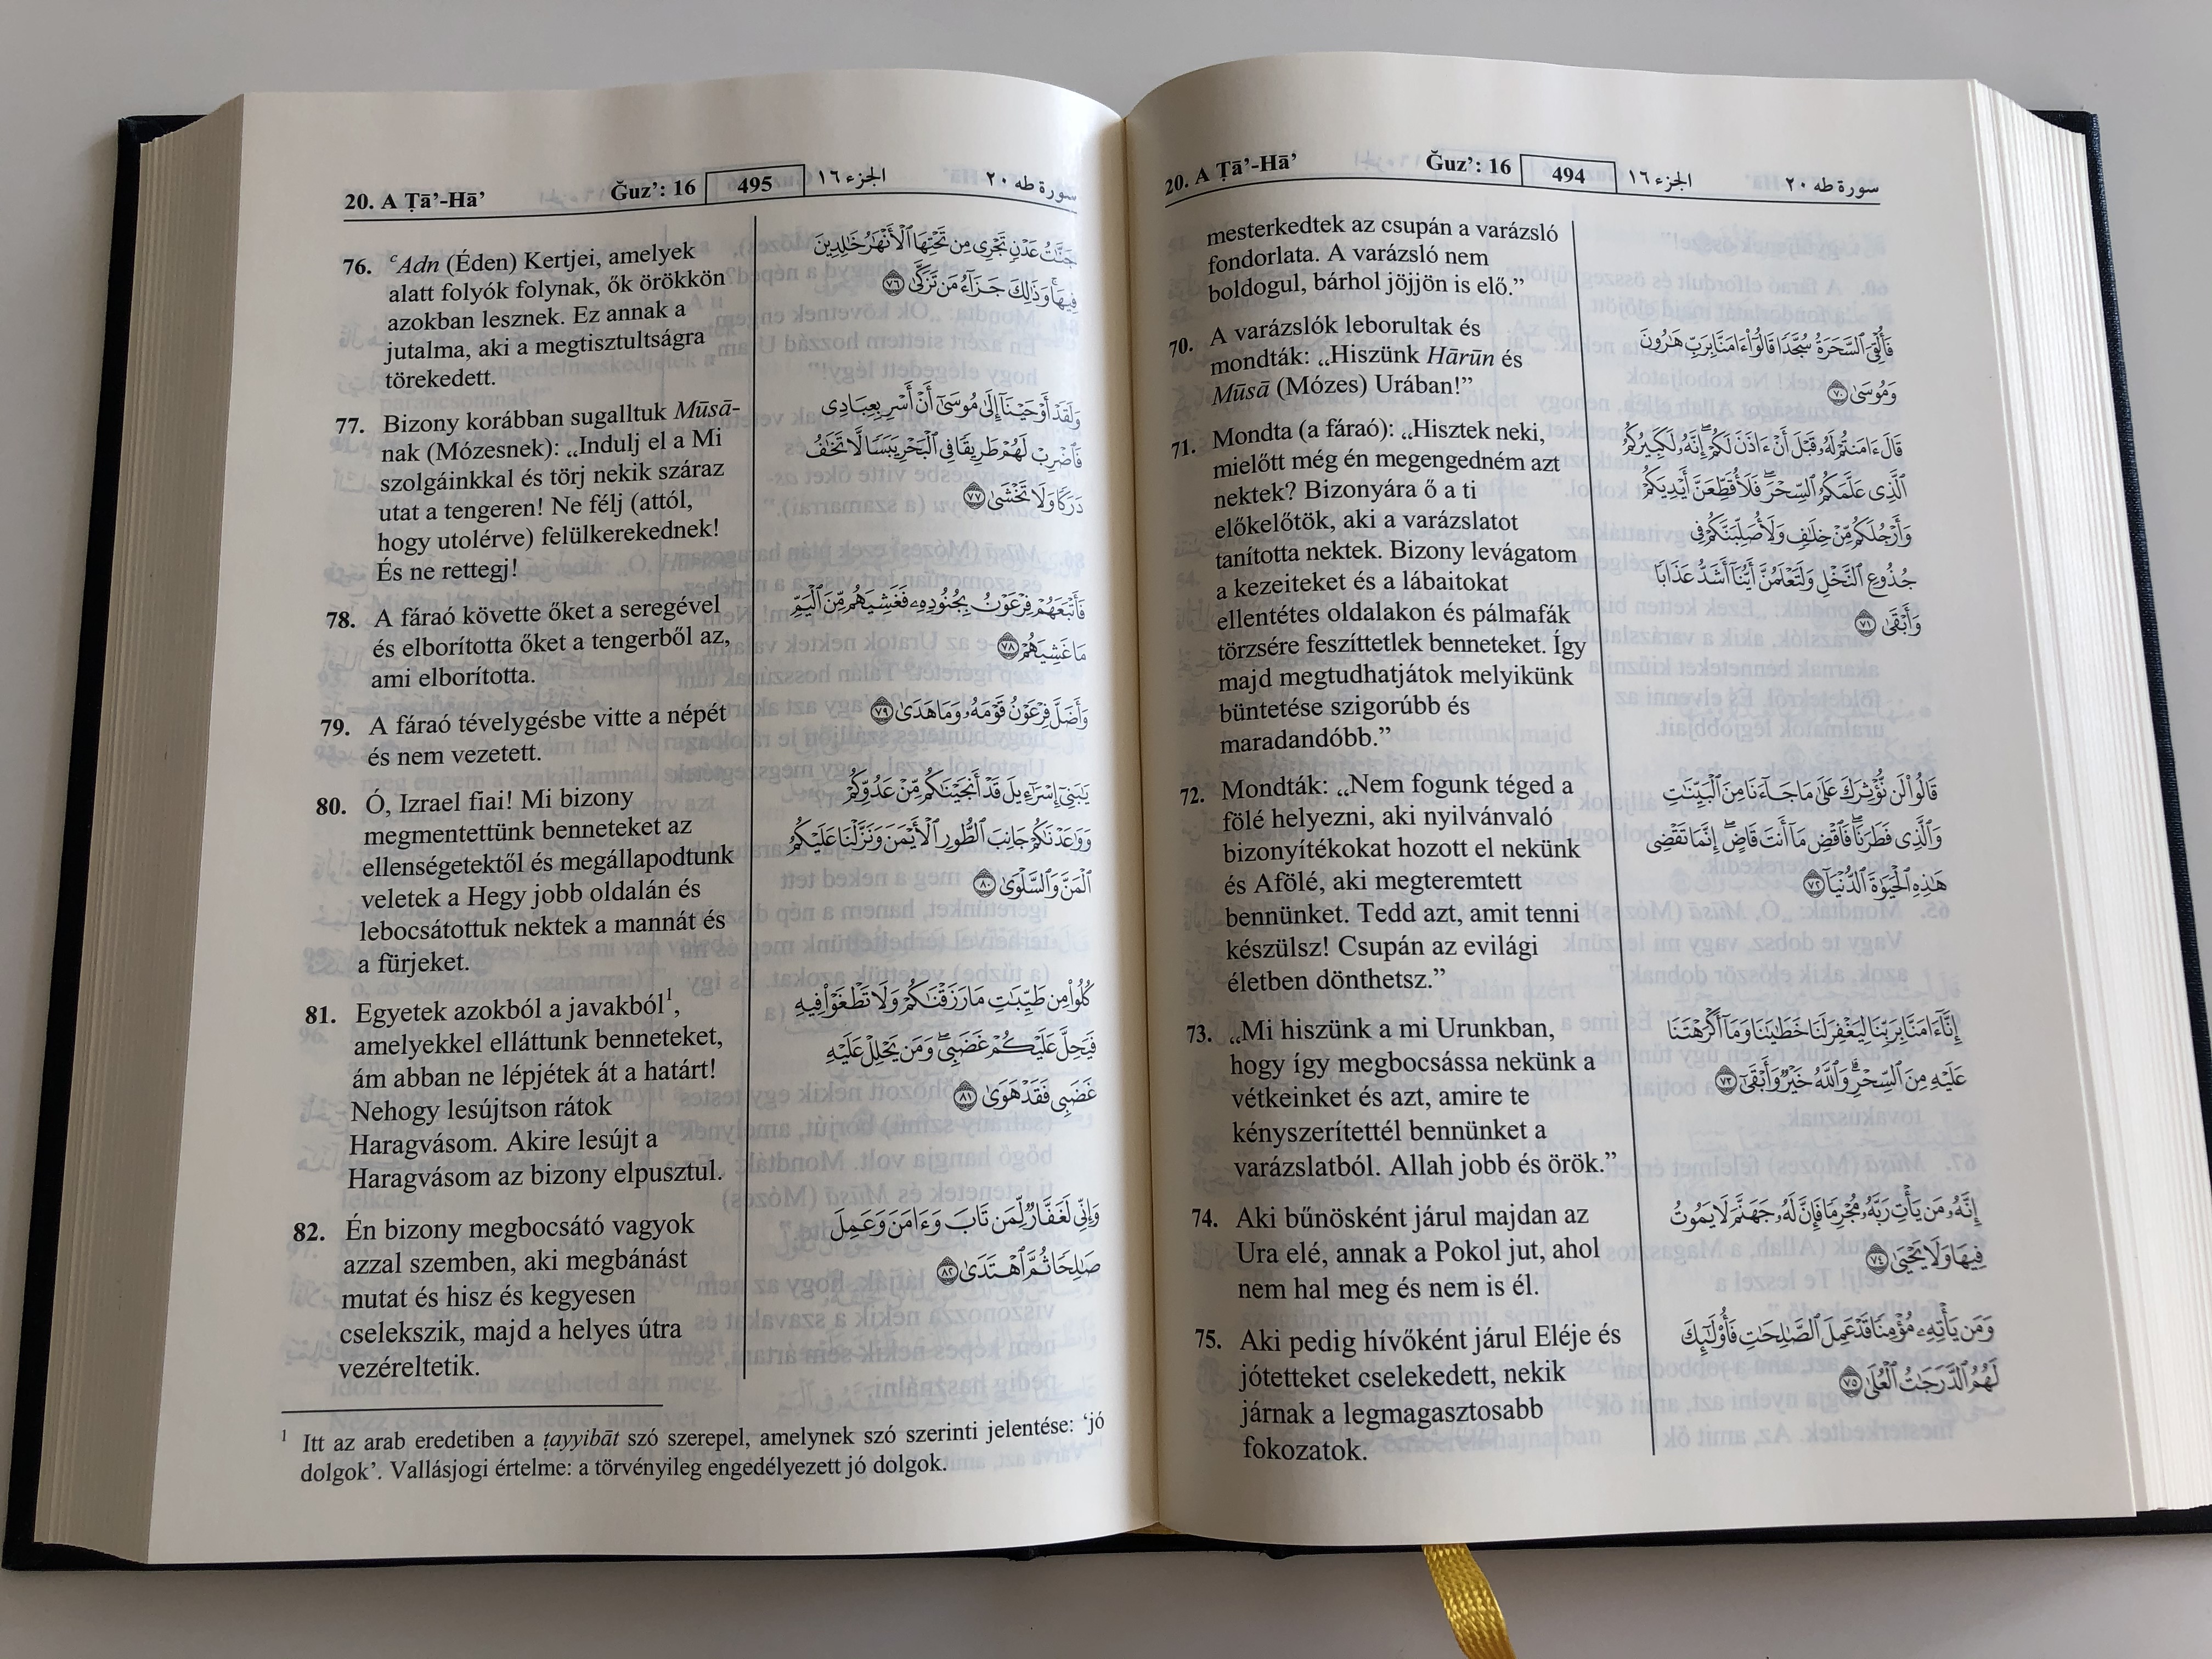 20. A Ṭā’-Hā’ Ğuz’: 16 494 الجزء ١٦ سورة طه ٢٠
mesterkedtek az csupán a varázsló
fondorlata. A varázsló nem
boldogul, bárhol jöjjön is elő.”
70. A varázslók leborultak és
mondták: „Hiszünk Hārūn és
Mūsā (Mózes) Urában!”
71. Mondta (a fáraó): „Hisztek neki,
mielőtt még én megengedném azt
nektek? Bizonyára ő a ti
előkelőtök, aki a varázslatot
tanította nektek. Bizony levágatom
a kezeiteket és a lábaitokat
ellentétes oldalakon és pálmafák
törzsére feszíttetlek benneteket. Így
majd megtudhatjátok melyikünk
büntetése szigorúbb és
maradandóbb.”
72. Mondták: „Nem fogunk téged a
fölé helyezni, aki nyilvánvaló
bizonyítékokat hozott el nekünk
és Afölé, aki megteremtett
bennünket. Tedd azt, amit tenni
készülsz! Csupán az evilági
életben dönthetsz.”
73. „Mi hiszünk a mi Urunkban,
hogy így megbocsássa nekünk a
vétkeinket és azt, amire te
kényszerítettél bennünket a
varázslatból. Allah jobb és örök.”
74. Aki bűnösként járul majdan az
Ura elé, annak a Pokol jut, ahol
nem hal meg és nem is él.
75. Aki pedig hívőként járul Eléje és
jótetteket cselekedett, nekik
járnak a legmagasztosabb
fokozatok.
فَأُلْقِىَ ٱلسَّحَرَةُ سُجَّدًا قَالُوٓا۟ ءَامَنَّا بِرَبِّ هَـٰرُونَ
وَمُوسَىٰ ٧٠
قَالَ ءَامَنتُمْ لَهُۥ قَبْلَ أَنْ ءَاذَنَ لَكُمْ ۖ إِنَّهُۥ لَكَبِيرُكُمُ
ٱلَّذِى عَلَّمَكُمُ ٱلسِّحْرَ ۖ فَلَأُقَطِّعَنَّ أَيْدِيَكُمْ
وَأَرْجُلَكُم مِّنْ خِلَـٰفٍ وَلَأُصَلِّبَنَّكُمْ فِى
جُذُوعِ ٱلنَّخْلِ وَلَتَعْلَمُنَّ أَيُّنَآ أَشَدُّ عَذَابًا
وَأَبْقَىٰ ٧١
قَالُوا۟ لَن نُّؤْثِرَكَ عَلَىٰ مَا جَآءَنَا مِنَ ٱلْبَيِّنَـٰتِ
وَٱلَّذِى فَطَرَنَا ۖ فَٱقْضِ مَآ أَنتَ قَاضٍ ۖ إِنَّمَا تَقْضِى
هَـٰذِهِ ٱلْحَيَوٰةَ ٱلدُّنْيَآ ٧٢
إِنَّآ ءَامَنَّا بِرَبِّنَا لِيَغْفِرَ لَنَا خَطَـٰيَـٰنَا وَمَآ أَكْرَهْتَنَا
عَلَيْهِ مِنَ ٱلسِّحْرِ ۗ وَٱللَّهُ خَيْرٌ وَأَبْقَىٰٓ ٧٣
إِنَّهُۥ مَن يَأْتِ رَبَّهُۥ مُجْرِمًا فَإِنَّ لَهُۥ جَهَنَّمَ لَا يَمُوتُ
فِيهَا وَلَا يَحْيَىٰ ٧٤
وَمَن يَأْتِهِۦ مُؤْمِنًا قَدْ عَمِلَ ٱلصَّـٰلِحَـٰتِ فَأُو۟لَـٰٓئِكَ
لَهُمُ ٱلدَّرَجَـٰتُ ٱلْعُلَىٰ ٧٥
20. A Ṭā’-Hā’ Ğuz’: 16 495 الجزء ١٦ سورة طه ٢٠
76. ᶜAdn (Éden) Kertjei, amelyek
alatt folyók folynak, ők örökkön
azokban lesznek. Ez annak a
jutalma, aki a megtisztultságra
törekedett.
77. Bizony korábban sugalltuk Mūsā-
nak (Mózesnek): „Indulj el a Mi
szolgáinkkal és törj nekik száraz
utat a tengeren! Ne félj (attól,
hogy utolérve) felülkerekednek!
És ne rettegj!
78. A fáraó követte őket a seregével
és elborította őket a tengerből az,
ami elborította.
79. A fáraó tévelygésbe vitte a népét
és nem vezetett.
80. Ó, Izrael fiai! Mi bizony
megmentettünk benneteket az
ellenségetektől és megállapodtunk
veletek a Hegy jobb oldalán és
lebocsátottuk nektek a mannát és
a fürjeket.
81. Egyetek azokból a javakból¹,
amelyekkel elláttunk benneteket,
ám abban ne lépjétek át a határt!
Nehogy lesújtson rátok
Haragvásom. Akire lesújt a
Haragvásom az bizony elpusztul.
82. Én bizony megbocsátó vagyok
azzal szemben, aki megbánást
mutat és hisz és kegyesen
cselekszik, majd a helyes útra
vezéreltetik.
جَنَّـٰتُ عَدْنٍ تَجْرِى مِن تَحْتِهَا ٱلْأَنْهَـٰرُ خَـٰلِدِينَ
فِيهَا ۚ وَذَٰلِكَ جَزَآءُ مَن تَزَكَّىٰ ٧٦
وَلَقَدْ أَوْحَيْنَآ إِلَىٰ مُوسَىٰٓ أَنْ أَسْرِ بِعِبَادِى
فَٱضْرِبْ لَهُمْ طَرِيقًا فِى ٱلْبَحْرِ يَبَسًا لَّا تَخَـٰفُ
دَرَكًا وَلَا تَخْشَىٰ ٧٧
فَأَتْبَعَهُمْ فِرْعَوْنُ بِجُنُودِهِۦ فَغَشِيَهُم مِّنَ ٱلْيَمِّ
مَا غَشِيَهُمْ ٧٨
وَأَضَلَّ فِرْعَوْنُ قَوْمَهُۥ وَمَا هَدَىٰ ٧٩
يَـٰبَنِىٓ إِسْرَٰٓءِيلَ قَدْ أَنجَيْنَـٰكُم مِّنْ عَدُوِّكُمْ
وَوَٰعَدْنَـٰكُمْ جَانِبَ ٱلطُّورِ ٱلْأَيْمَنَ وَنَزَّلْنَا عَلَيْكُمُ
ٱلْمَنَّ وَٱلسَّلْوَىٰ ٨٠
كُلُوا۟ مِن طَيِّبَـٰتِ مَا رَزَقْنَـٰكُمْ وَلَا تَطْغَوْا۟ فِيهِ
فَيَحِلَّ عَلَيْكُمْ غَضَبِى ۖ وَمَن يَحْلِلْ عَلَيْهِ
غَضَبِى فَقَدْ هَوَىٰ ٨١
وَإِنِّى لَغَفَّارٌ لِّمَن تَابَ وَءَامَنَ وَعَمِلَ
صَـٰلِحًا ثُمَّ ٱهْتَدَىٰ ٨٢
¹ Itt az arab eredetiben a ṭayyibāt szó szerepel, amelynek szó szerinti jelentése: ‘jó
dolgok’. Vallásjogi értelme: a törvényileg engedélyezett jó dolgok.